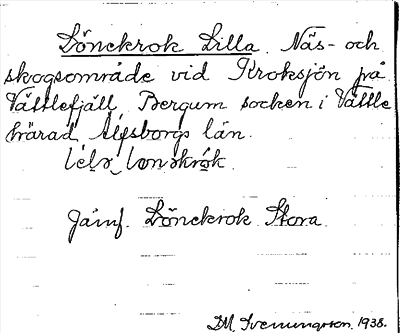 Lönekrok Lilla. Näs- och
skogsområde vid Kroksjön på
Vättlefjäll, Bergum socken i Vättle
härad, Älfsborgs län.
Jämf. Lönekrok Stora.
DM. Svenningsson. 1938.